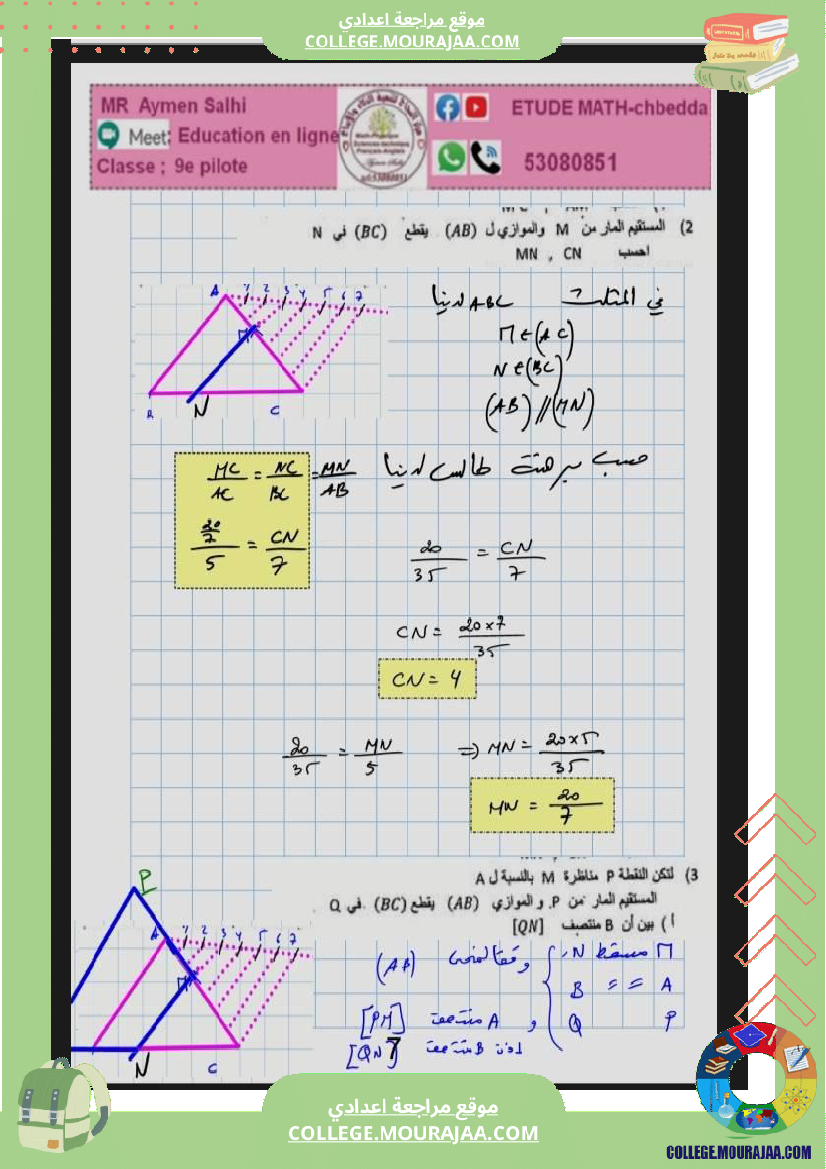 موقع مراجعة اعدادي
COLLEGE.MOURAJAA.COM
MR Aymen Salhi
Meet: Education en ligne
Classe ; 9e pilote
ETUDE MATH-chbedda
53080851
2) المستقيم المار من M والموازي ل (AB) يقطع (BC) في N
احسب MN , CN
A 1 2 3 4 5 6 7
M
B N C
في المثلث ABC لدينا
M ∈ (AC)
N ∈ (BC)
(AB) // (MN)
حسب مبرهنة طالس لدينا
MC/AC = NC/BC = MN/AB
(20/7)/5 = CN/7
20/35 = CN/7
CN = 20×7/35
CN = 4
20/35 = MN/5 ⇒ MN = 20×5/35
MN = 20/7
3) لتكن النقطة P مناظرة M بالنسبة ل A
المستقيم المار من P و الموازي (AB) يقطع (BC) في Q
أ) بين أن B منتصف [QN]
P
A 1 2 3 4 5 6 7
M
N C
M مسقط N وفقا لمنحى (AB)
A = = B
P Q
و A منتصف [PM]
اذن B منتصف [QN]
موقع مراجعة اعدادي
COLLEGE.MOURAJAA.COM
COLLEGE.MOURAJAA.COM